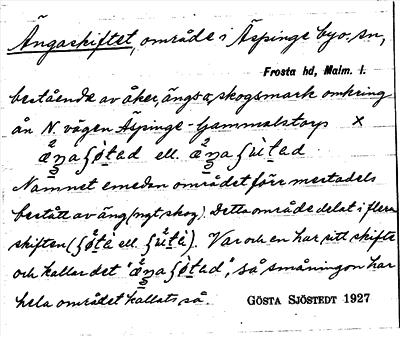 Ängaskiftet, område i Äspinge by o. sn,
Frosta hd, Malm. l.
bestående av åker, ängs o. skogsmark omkring
ån N. vägen Äspinge - Gammalstorp x
ell.
Namnet emedan området förr mestadels
bestått av äng (ngt skog). Detta område delat i flera
skiften ( ell. ). Var och en har sitt skifte
och kallar det " ", så småningom har
hela området kallats så. GÖSTA SJÖSTEDT 1927